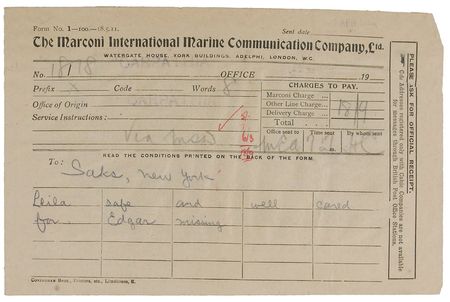 Form No. 1—100.—18.5.11. Sent date
The Marconi International Marine Communication Company, Ltd.
WATERGATE HOUSE, YORK BUILDINGS, ADELPHI, LONDON, W.C.
No. OFFICE 19
Prefix Code Words
CHARGES TO PAY.
Office of Origin
Marconi Charge
Other Line Charge
Service Instructions:
Delivery Charge
Total
Via
Office sent to Time sent By whom sent
READ THE CONDITIONS PRINTED ON THE BACK OF THE FORM.
To: Saks, New York
Leila safe and well cared
for Edgar missing
PLEASE ASK FOR OFFICIAL RECEIPT.
Code Addresses registered only with Cable Companies are not available
for messages through British Post Office Stations.